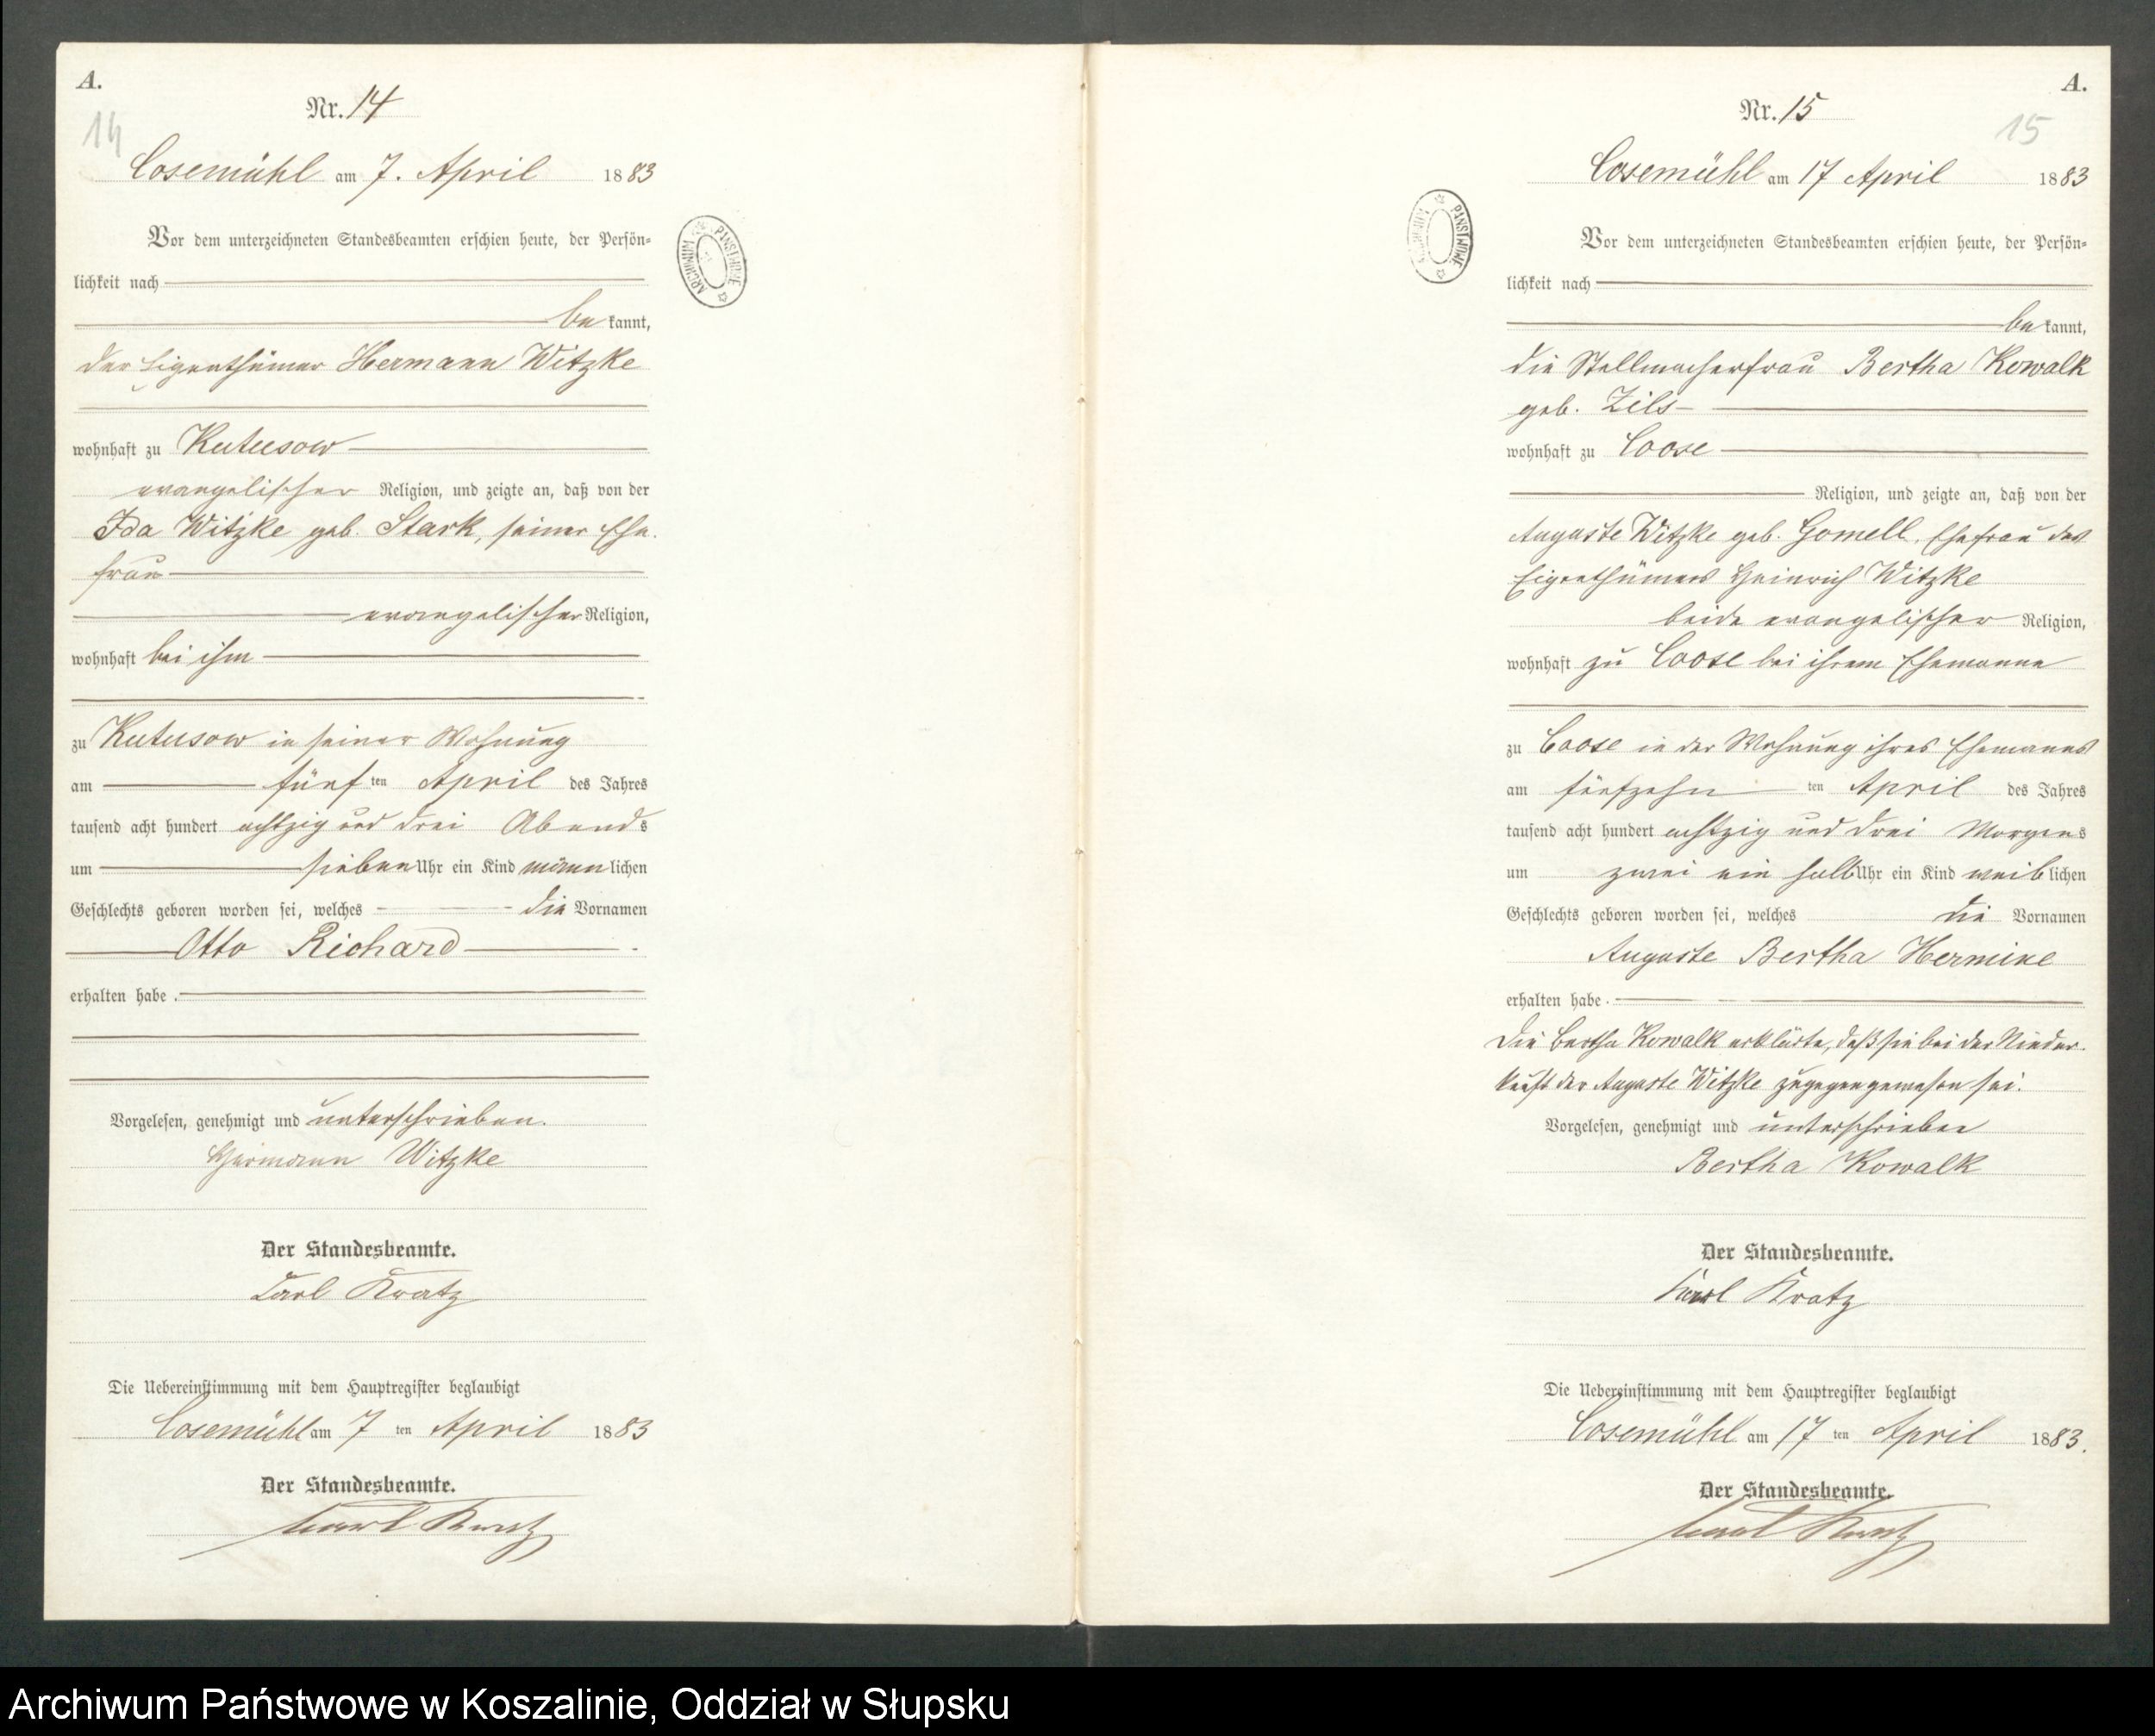 A.
Nr. 14
14
Cosemühl am 7. April 1883
Vor dem unterzeichneten Standesbeamten erschien heute, der Persön-
lichkeit nach
bekannt,
der Eigenthümer Hermann Witzke
wohnhaft zu Kutusow
evangelischer Religion, und zeigte an, daß von der
Ida Witzke geb. Stark, seiner Ehe-
frau
evangelischer Religion,
wohnhaft bei ihm
zu Kutusow in seiner Wohnung
am fünften April des Jahres
tausend acht hundert achtzig und drei Abends
um sieben Uhr ein Kind männlichen
Geschlechts geboren worden sei, welches die Vornamen
Otto Richard
erhalten habe.
Vorgelesen, genehmigt und unterschrieben.
Hermann Witzke
Der Standesbeamte.
Carl Kratz
Die Uebereinstimmung mit dem Hauptregister beglaubigt
Cosemühl am 7 ten April 1883
Der Standesbeamte.
Carl Kratz
ARCHIWUM PAŃSTWOWE
A.
Nr. 15
15
Cosemühl am 17 April 1883
Vor dem unterzeichneten Standesbeamten erschien heute, der Persön-
lichkeit nach
bekannt,
die Stellmacherfrau Bertha Kowalk
geb. Zils
wohnhaft zu Coose
Religion, und zeigte an, daß von der
Auguste Witzke geb. Gomell, Ehefrau des
Eigenthümers Heinrich Witzke
beide evangelischer Religion,
wohnhaft zu Coose bei ihrem Ehemanne
zu Coose in der Wohnung ihres Ehemanns
am fünfzehn ten April des Jahres
tausend acht hundert achtzig und drei Morgens
um zwei ein halb Uhr ein Kind weiblichen
Geschlechts geboren worden sei, welches die Vornamen
Auguste Bertha Hermine
erhalten habe.
Die Bertha Kowalk erklärte, daß sie bei der Nieder-
kunft der Auguste Witzke zugegen gewesen sei.
Vorgelesen, genehmigt und unterschrieben
Bertha Kowalk
Der Standesbeamte.
Carl Kratz
Die Uebereinstimmung mit dem Hauptregister beglaubigt
Cosemühl am 17 ten April 1883.
Der Standesbeamte.
Carl Kratz
ARCHIWUM PAŃSTWOWE
Archiwum Państwowe w Koszalinie, Oddział w Słupsku